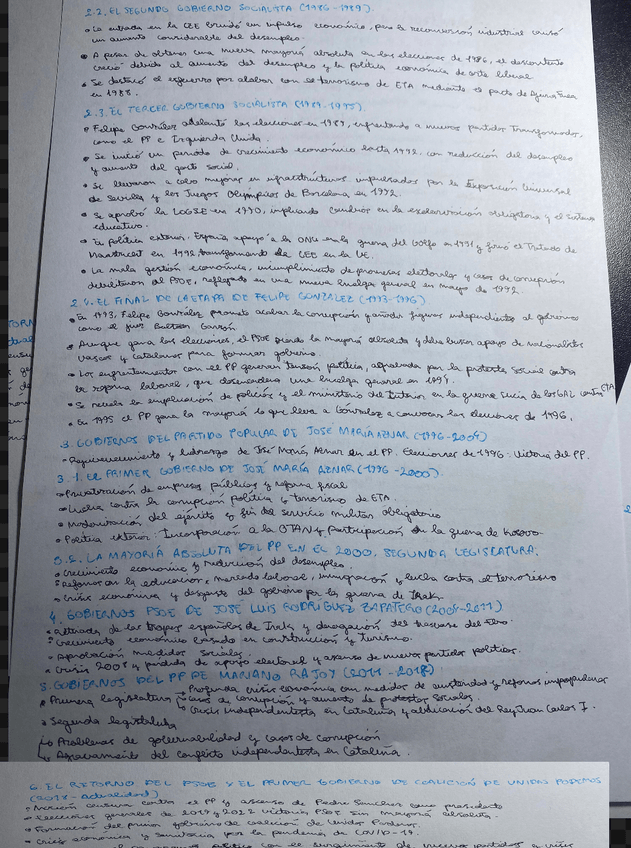 2.2. EL SEGUNDO GOBIERNO SOCIALISTA (1986-1989).
• La entrada en la CEE brindó un impulso económico, pero la reconversión industrial causó
un aumento considerable del desempleo.
• A pesar de obtener una nueva mayoría absoluta en las elecciones de 1986, el descontento
creció debido al aumento del desempleo y la política económica de corte liberal
• Se destacó el esfuerzo por acabar con el terrorismo de ETA mediante el pacto de Ajuria Enea
en 1988.
2.3. EL TERCER GOBIERNO SOCIALISTA (1989-1993).
• Felipe González adelantó las elecciones en 1989, enfrentando a nuevos partidos transformados,
como el PP e Izquierda Unida.
• Se inició un periodo de crecimiento económico hasta 1992, con reducción del desempleo
y aumento del gasto social.
• Se llevaron a cabo mejoras en infraestructuras impulsadas por la Exposición Universal
de Sevilla y los Juegos Olímpicos de Barcelona en 1992.
• Se aprobó la LOGSE en 1990, implicando cambios en la escolarización obligatoria y el sistema
educativo.
• En política exterior, España apoyó a la ONU en la guerra del Golfo en 1991 y firmó el Tratado de
Maastricht en 1992, transformando la CEE en la UE.
• La mala gestión económica, incumplimiento de promesas electorales y casos de corrupción
debilitaron al PSOE, reflejado en una nueva huelga general en mayo de 1992.
2.4. EL FINAL DE LA ETAPA DE FELIPE GONZÁLEZ (1993-1996)
• En 1993, Felipe González prometió acabar la corrupción y añadir figuras independientes al gobierno
como el juez Baltasar Garzón.
• Aunque gana las elecciones, el PSOE pierde la mayoría absoluta y debe buscar apoyo de nacionalistas
vascos y catalanes para formar gobierno.
• Los enfrentamientos con el PP generan tensión política, agravada por la protesta social contra
la reforma laboral, que desencadena una huelga general en 1994.
• Se revela la implicación de policías y el ministerio del Interior en la guerra sucia de los GAL contra ETA
• En 1995 el PP gana la mayoría lo que lleva a González a convocar las elecciones de 1996.
3. GOBIERNOS DEL PARTIDO POPULAR DE JOSÉ MARÍA AZNAR (1996-2004)
• Rejuvenecimiento y liderazgo de José María Aznar en el PP. Elecciones de 1996: Victoria del PP.
3.1. EL PRIMER GOBIERNO DE JOSÉ MARÍA AZNAR (1996-2000).
• Privatización de empresas públicas y reforma fiscal
• Lucha contra la corrupción política y terrorismo de ETA.
• Modernización del ejército y fin del servicio militar obligatorio
• Política exterior: Incorporación a la OTAN y participación en la guerra de Kosovo.
LA MAYORÍA ABSOLUTA DEL PP EN EL 2000, SEGUNDA LEGISLATURA.
• Crecimiento económico y reducción del desempleo.
• Reformas en la educación, mercado laboral, inmigración y lucha contra el terrorismo
• Crisis económica y desgaste del gobierno por la guerra de Irak.
4. GOBIERNOS PSOE DE JOSÉ LUIS RODRÍGUEZ ZAPATERO (2004-2011)
• de las tropas españolas de Irak y derogación del trasvase del Ebro.
• Crecimiento económico basado en construcción y turismo.
• Aprobación medidas sociales.
• Crisis 2008 y pérdida de apoyo electoral y ascenso de nuevos partidos políticos.
5. GOBIERNOS DEL PP DE MARIANO RAJOY (2011-2018)
• Primera legislatura
• Profunda crisis económica con medidas de austeridad y reformas impopulares
• Casos de corrupción y aumento de protestas sociales.
• Crisis independentista en Cataluña y abdicación del Rey Juan Carlos I.
• Segunda legislatura
Problemas de gobernabilidad y casos de corrupción
Agravamiento del conflicto independentista en Cataluña.
6. EL RETORNO DEL PSOE Y EL PRIMER GOBIERNO DE COALICIÓN DE UNIDAS PODEMOS
(2018-actualidad)
• Moción censura contra el PP y ascenso de Pedro Sánchez como presidente
• Elecciones generales de 2019 y 2023 victoria PSOE sin mayoría absoluta.
• Formación del primer gobierno de coalición de Unidas Podemos.
• Crisis económica y sanitaria por la pandemia de COVID-19.